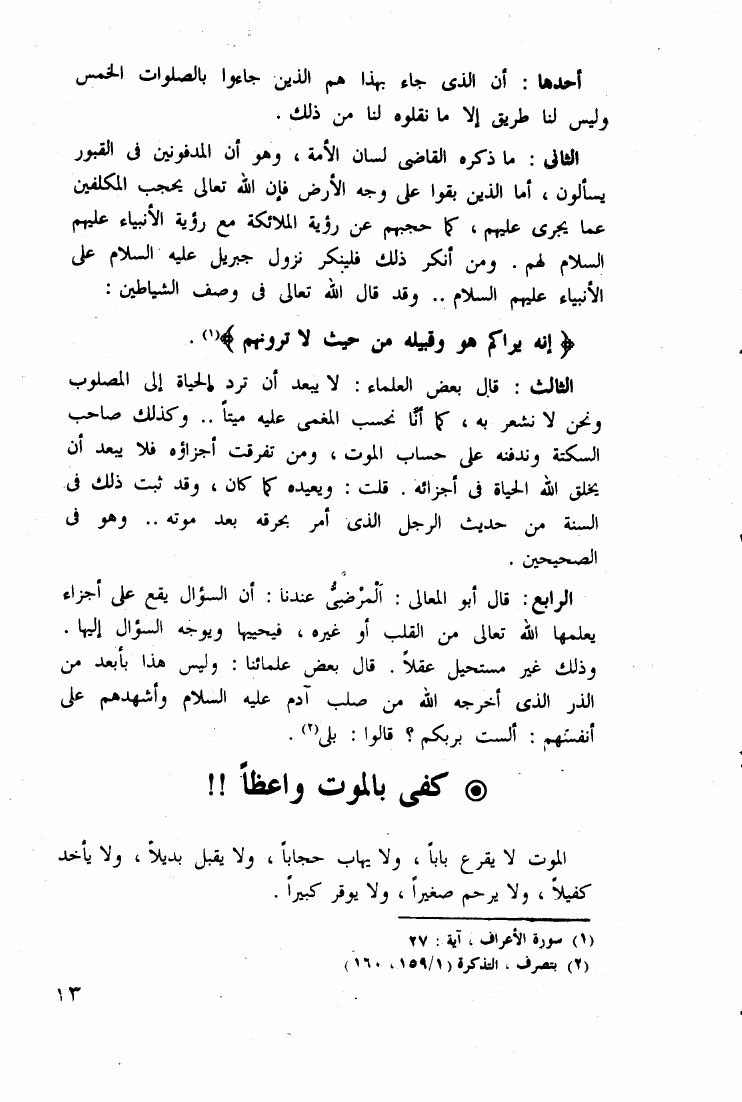 أحدها : أن الذى جاء بهذا هم الذين جاءوا بالصلوات الخمس
وليس لنا طريق إلا ما نقلوه لنا من ذلك .
الثانى : ما ذكره القاضى لسان الأمة ، وهو أن المدفونين فى القبور
يسألون ، أما الذين بقوا على وجه الأرض فإن الله تعالى يحجب المكلفين
عما يجرى عليهم ، كما حجبهم عن رؤية الملائكة مع رؤية الأنبياء عليهم
السلام لهم . ومن أنكر ذلك فلينكر نزول جبريل عليه السلام على
الأنبياء عليهم السلام .. وقد قال الله تعالى فى وصف الشياطين :
﴿ إنه يراكم هو وقبيله من حيث لا ترونهم ﴾(١) .
الثالث : قال بعض العلماء : لا يبعد أن ترد الحياة إلى المصلوب
ونحن لا نشعر به ، كما أنَّا نحسب المغمى عليه ميتاً .. وكذلك صاحب
السكتة وندفنه على حساب الموت ، ومن تفرقت أجزاؤه فلا يبعد أن
يخلق الله الحياة فى أجزائه . قلت : ويعيده كما كان ، وقد ثبت ذلك فى
السنة من حديث الرجل الذى أمر بحرقه بعد موته .. وهو فى
الصحيحين .
الرابع : قال أبو المعالى : اَلْمرْضىُّ عندنا : أن السؤال يقع على أجزاء
يعلمها الله تعالى من القلب أو غيره ، فيحييها ويوجه السؤال إليها .
وذلك غير مستحيل عقلاً . قال بعض علمائنا : وليس هذا بأبعد من
الذر الذى أخرجه الله من صلب آدم عليه السلام وأشهدهم على
أنفسهم : ألست بربكم ؟ قالوا : بلى(٢) .
◉ كفى بالموت واعظاً !!
الموت لا يقرع باباً ، ولا يهاب حجاباً ، ولا يقبل بديلاً ، ولا يأخد
كفيلاً ، ولا يرحم صغيراً ، ولا يوقر كبيراً .
(١) سورة الأعراف ، آية : ٢٧
(٢) بتصرف ، التذكرة (١٥٩/١ ، ١٦٠)
١٣